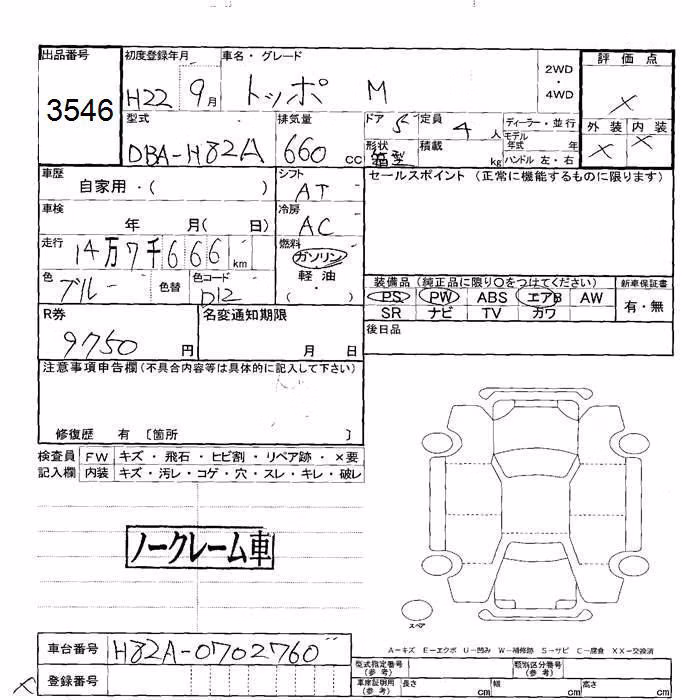 出品番号 初度登録年月 車名・グレード 2WD ・ 4WD 評価点
3546 H22 9月 トッポ M ×
型式 排気量 ドア 5 定員 4人 ディーラー・並行 外装 内装
DBA-H82A 660 cc 形状 箱型 積載 kg モデル年式 年 ハンドル 左・右 × ×
車歴 自家用・( ) シフト AT セールスポイント (正常に機能するものに限ります)
車検 年 月( 日) 冷房 AC
走行 14万7千666km 燃料 ガソリン 軽油 ・ ( )
色 ブルー 色替 色コード D12 装備品 (純正品に限り○をつけてください) 新車保証書
PS PW ABS エアB AW 有・無
SR ナビ TV カワ
R券 9750円 名変通知期限 月 日 後日品
注意事項申告欄 (不具合内容等は具体的に記入して下さい)
修復歴 有 〔箇所 〕
検査員 FW キズ・飛石・ヒビ割・リペア跡・×要
記入欄 内装 キズ・汚レ・コゲ・穴・スレ・キレ・破レ
ノークレーム車
スペア
車台番号 H82A-0702760 A−キズ E−エクボ U−凹み W−補修跡 S−サビ C−腐食 XX−交換済
登録番号 型式指定番号 (参考) 類別区分番号 (参考)
× 車庫証明用 (参考) 長さ cm 幅 cm 高さ cm